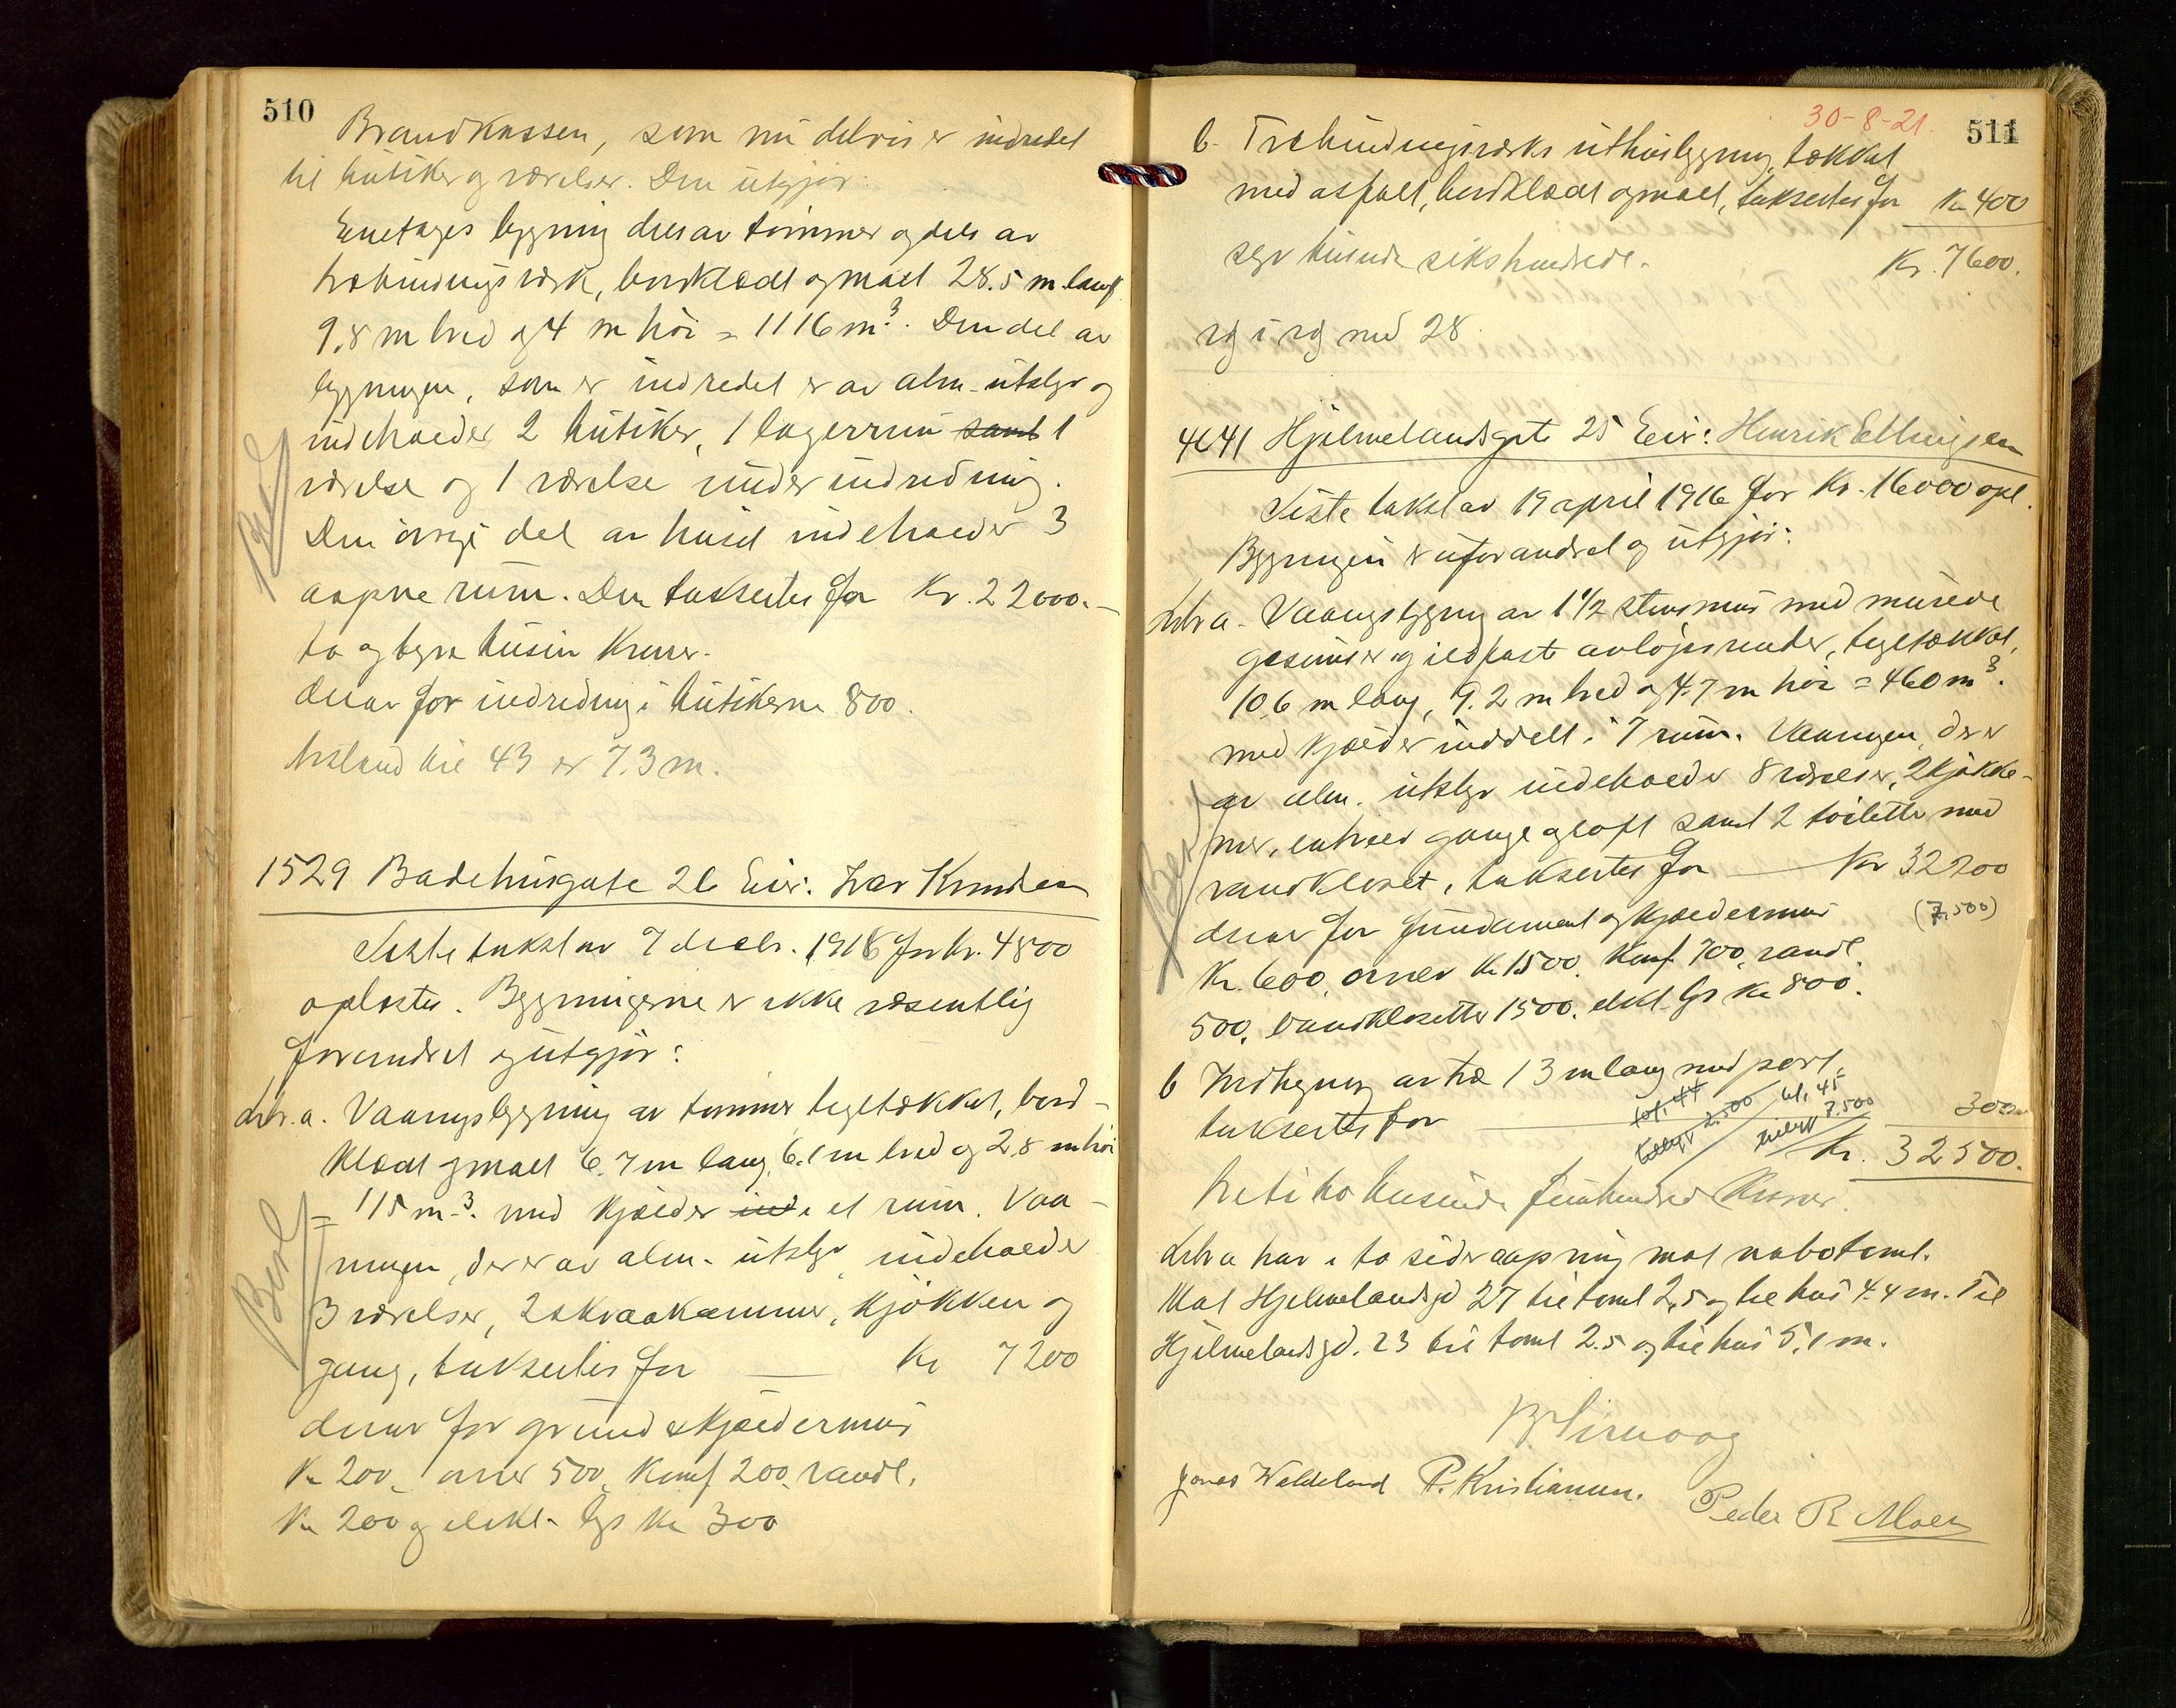 510
Brandkassen, som nu delvis er indredet
til butiker og værelser. Den utgjør:
Enetages bygning dels av tømmer og dels av
træbindingsverk, bordklædt og malt 28.5 m. lang
9.8 m bred og 4 m høi = 1116 m³. Den del av
bygningen, som er indredet er av alm. utstyr og
indeholder 2 butiker, 1 lagerrum samt 1
værelse og 1 værelse under indredning.
Den øvrige del av huset indeholder 3
aapne rum. Den takseres for Kr. 22000.-
to og tyve tusin Kroner.
derav for indredning i butikerne 800.
Avstand til 43 er 7.3 m.
1529 Badehusgate 26 Eier: Ivar Knudsen
Siste takst av 7 decbr. 1918 for kr. 4800
oplæstes. Bygningerne er ikke væsentlig
forandret og utgjør:
Litr. a. Vaaningsbygning av tømmer, teglstækket, bord-
klædt og malt 6.7 m lang, 6.1 m bred og 2.8 m høi
= 115 m³. med kjælder ind i et rum. Vaa-
ningen, der er av alm. utstyr, indeholder
3 værelser, 2 skraakammer, kjøkken og
gang, takseres for Kr 7200
derav for grund & kjældermur
Kr 200, ovner 500, komf 200, vandl.
Kr 200 og elekt. lys Kr 300
30-8-21.
511
b. Træbindingsverks uthusbygning, tækket
med asfalt, bordklædt og malt, takseres for Kr 400
syv tusinde sekshundrede. Kr. 7600.
4641 Hjelmelandsgate 25 Eier: Henrik Ellingsen
Siste takst av 19 april 1916 for Kr. 16000 opl.
Bygningen er uforandret og utgjør:
Litr a. Vaaningsbygning av 1 1/2 stens mur med murede
gesimser og ildfaste avløpsrender, teglstækket,
10,6 m lang, 9.2 m bred og 4.7 m høi = 460 m³.
med kjælder inddelt i 7 rum. Vaaningen, der er
av alm. utstyr indeholder 8 værelser, 2 kjøkke-
ner, entreer gange og loft samt 2 toiletter med
vandkloset, takseres for Kr 32200
(7,500)
derav for fundament og kjældermur
Kr. 600, ovner Kr 1500. Komf 700, vandl.
500, vandklosetter 1500. elekt. lys Kr 800.
b Indhegning av træ 13 m lang med port,
takseres for 300
Kr. 32500.
treti to tusinde femhundred Kroner.
Litr a har i to sider aapning mot nabotomt.
Mot Hjelmelandsgd 27 til tomt 2,5 og til hus 4.4 m. Til
Hjelmelandsgd. 23 til tomt 2.5 og til hus 5,1 m.
Jonas Waldeland P. Kristiansen. Peder R Moen